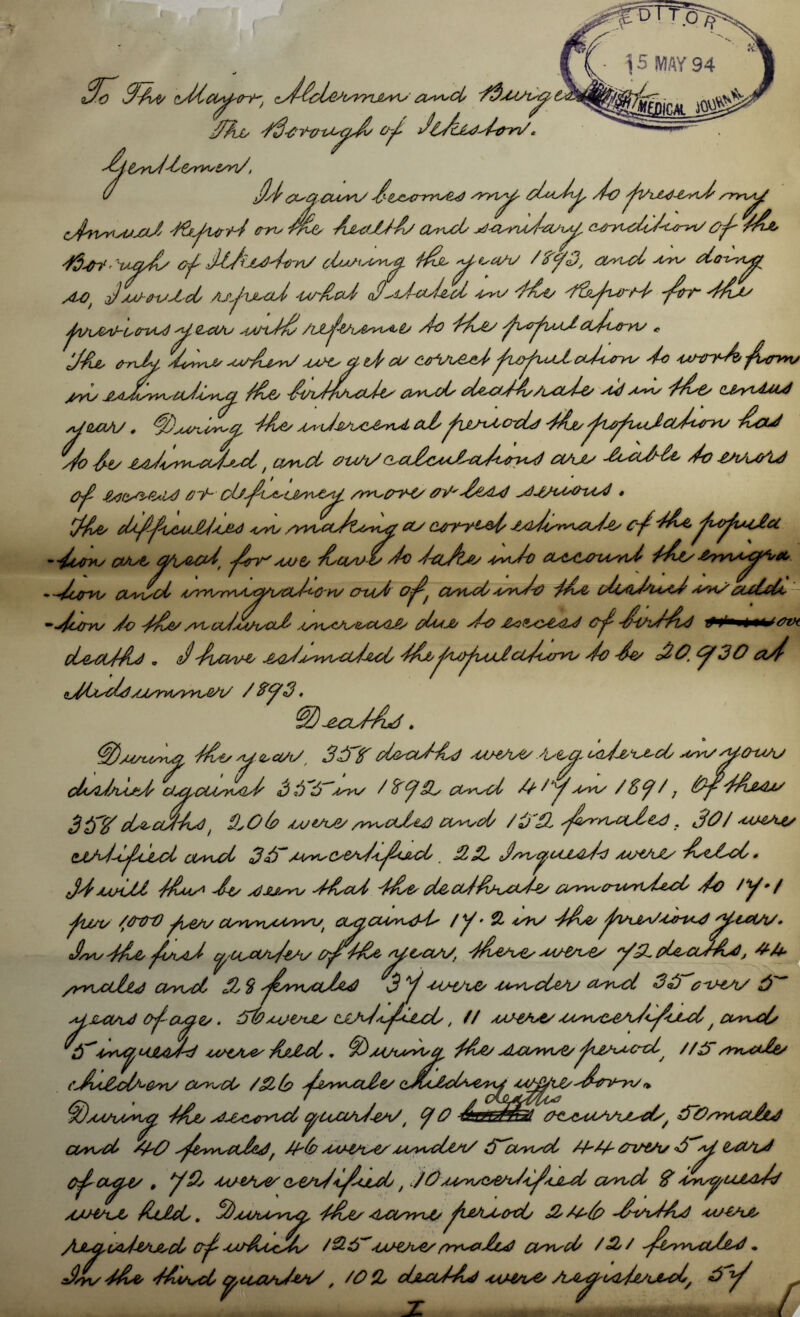 EDITOR
15 MAY 94
BRITISH MEDICAL JOURNAL
To The Mayor, Aldermen and Burgesses
The Borough of Ilkeston.
Gentlemen,
It again becomes my duty to present my
Annual Report on the health and sanitary condition of the
Borough of Ilkeston during the year 1893, and in doing
so, I would repeat what I stated in the Report for the
previous year with reference to the population.
The only time when we get a correct population to work from
in estimating the birthrate and deathrate is in the census
year. During the intercensal periods the population has
to be estimated, and our calculations are liable to errors
of excess or deficiency more or less serious.
The difficulties in making a correct estimate of the popula
-tion are great, for we have to take into account the emigra
-tion and immigration out of, and into the district in addi
-tion to the natural increase due to excess of births over
deaths. I have estimated the population to be 20.930 at
Midsummer 1893.
Deaths.
During the year, 358 deaths were registered in your
district against 355 in 1892 and 417 in 1891, Of these
358 deaths, 206 were males and 152 females. 301 were
certified and 35 uncertified. 22 Inquests were held.
It will thus be seen that the deathrate amounted to 17.1
per 1000 per annum, against 17.2 in the previous year.
In the first quarter of the year, there were 72 deaths, 44
males and 28 females 37 were under and 35 over 5
years of age. 56 were certified, 11 were uncertified, and
5 inquests were held. During the same period, 115 male
children and 126 female children were born.
During the second quarter, 90 deaths occurred, 50 males
and 40 females, 46 were under 5 and 44 over 5 years
of age. 72 were certified, 10 uncertified and 8 inquests
were held. During the same period 246 births were
registered of which 125 were males and 121 females.
In the third quarter, 102 deaths were registered, 57
I